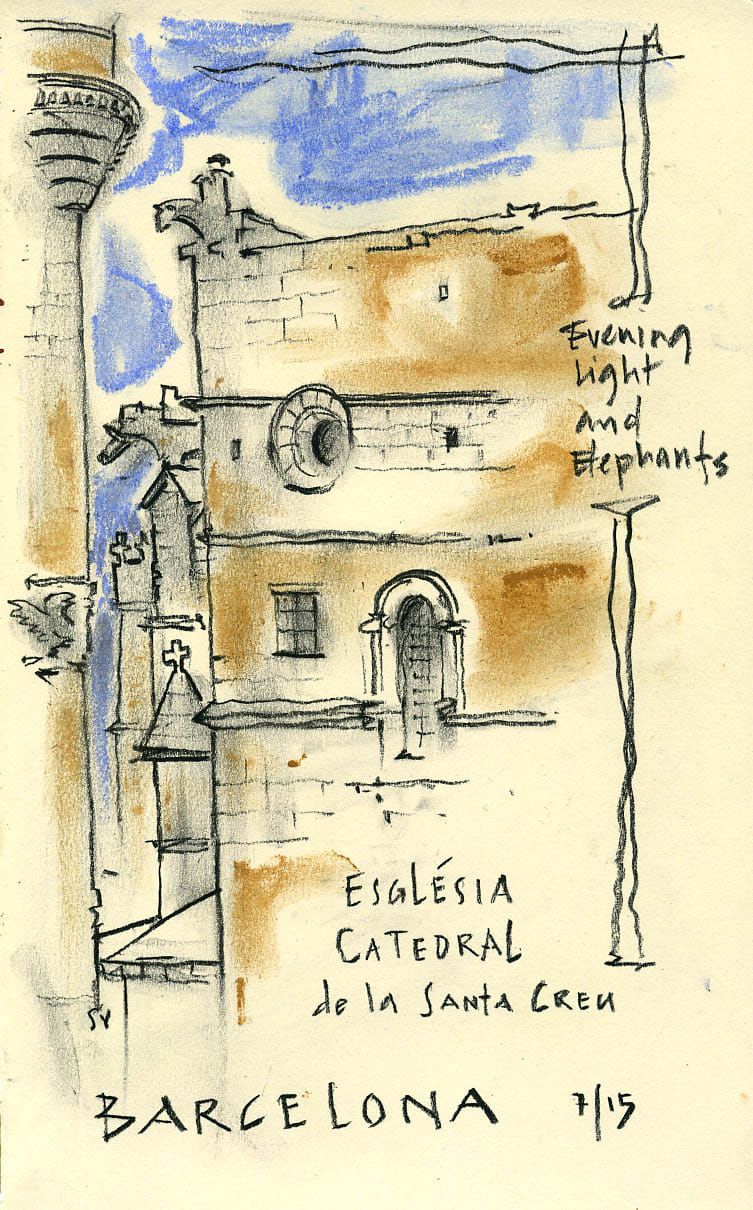 Evening
Light
and
Elephants
ESGLÉSIA
CATEDRAL
de la SANTA CREU
SY
BARCELONA 7/15